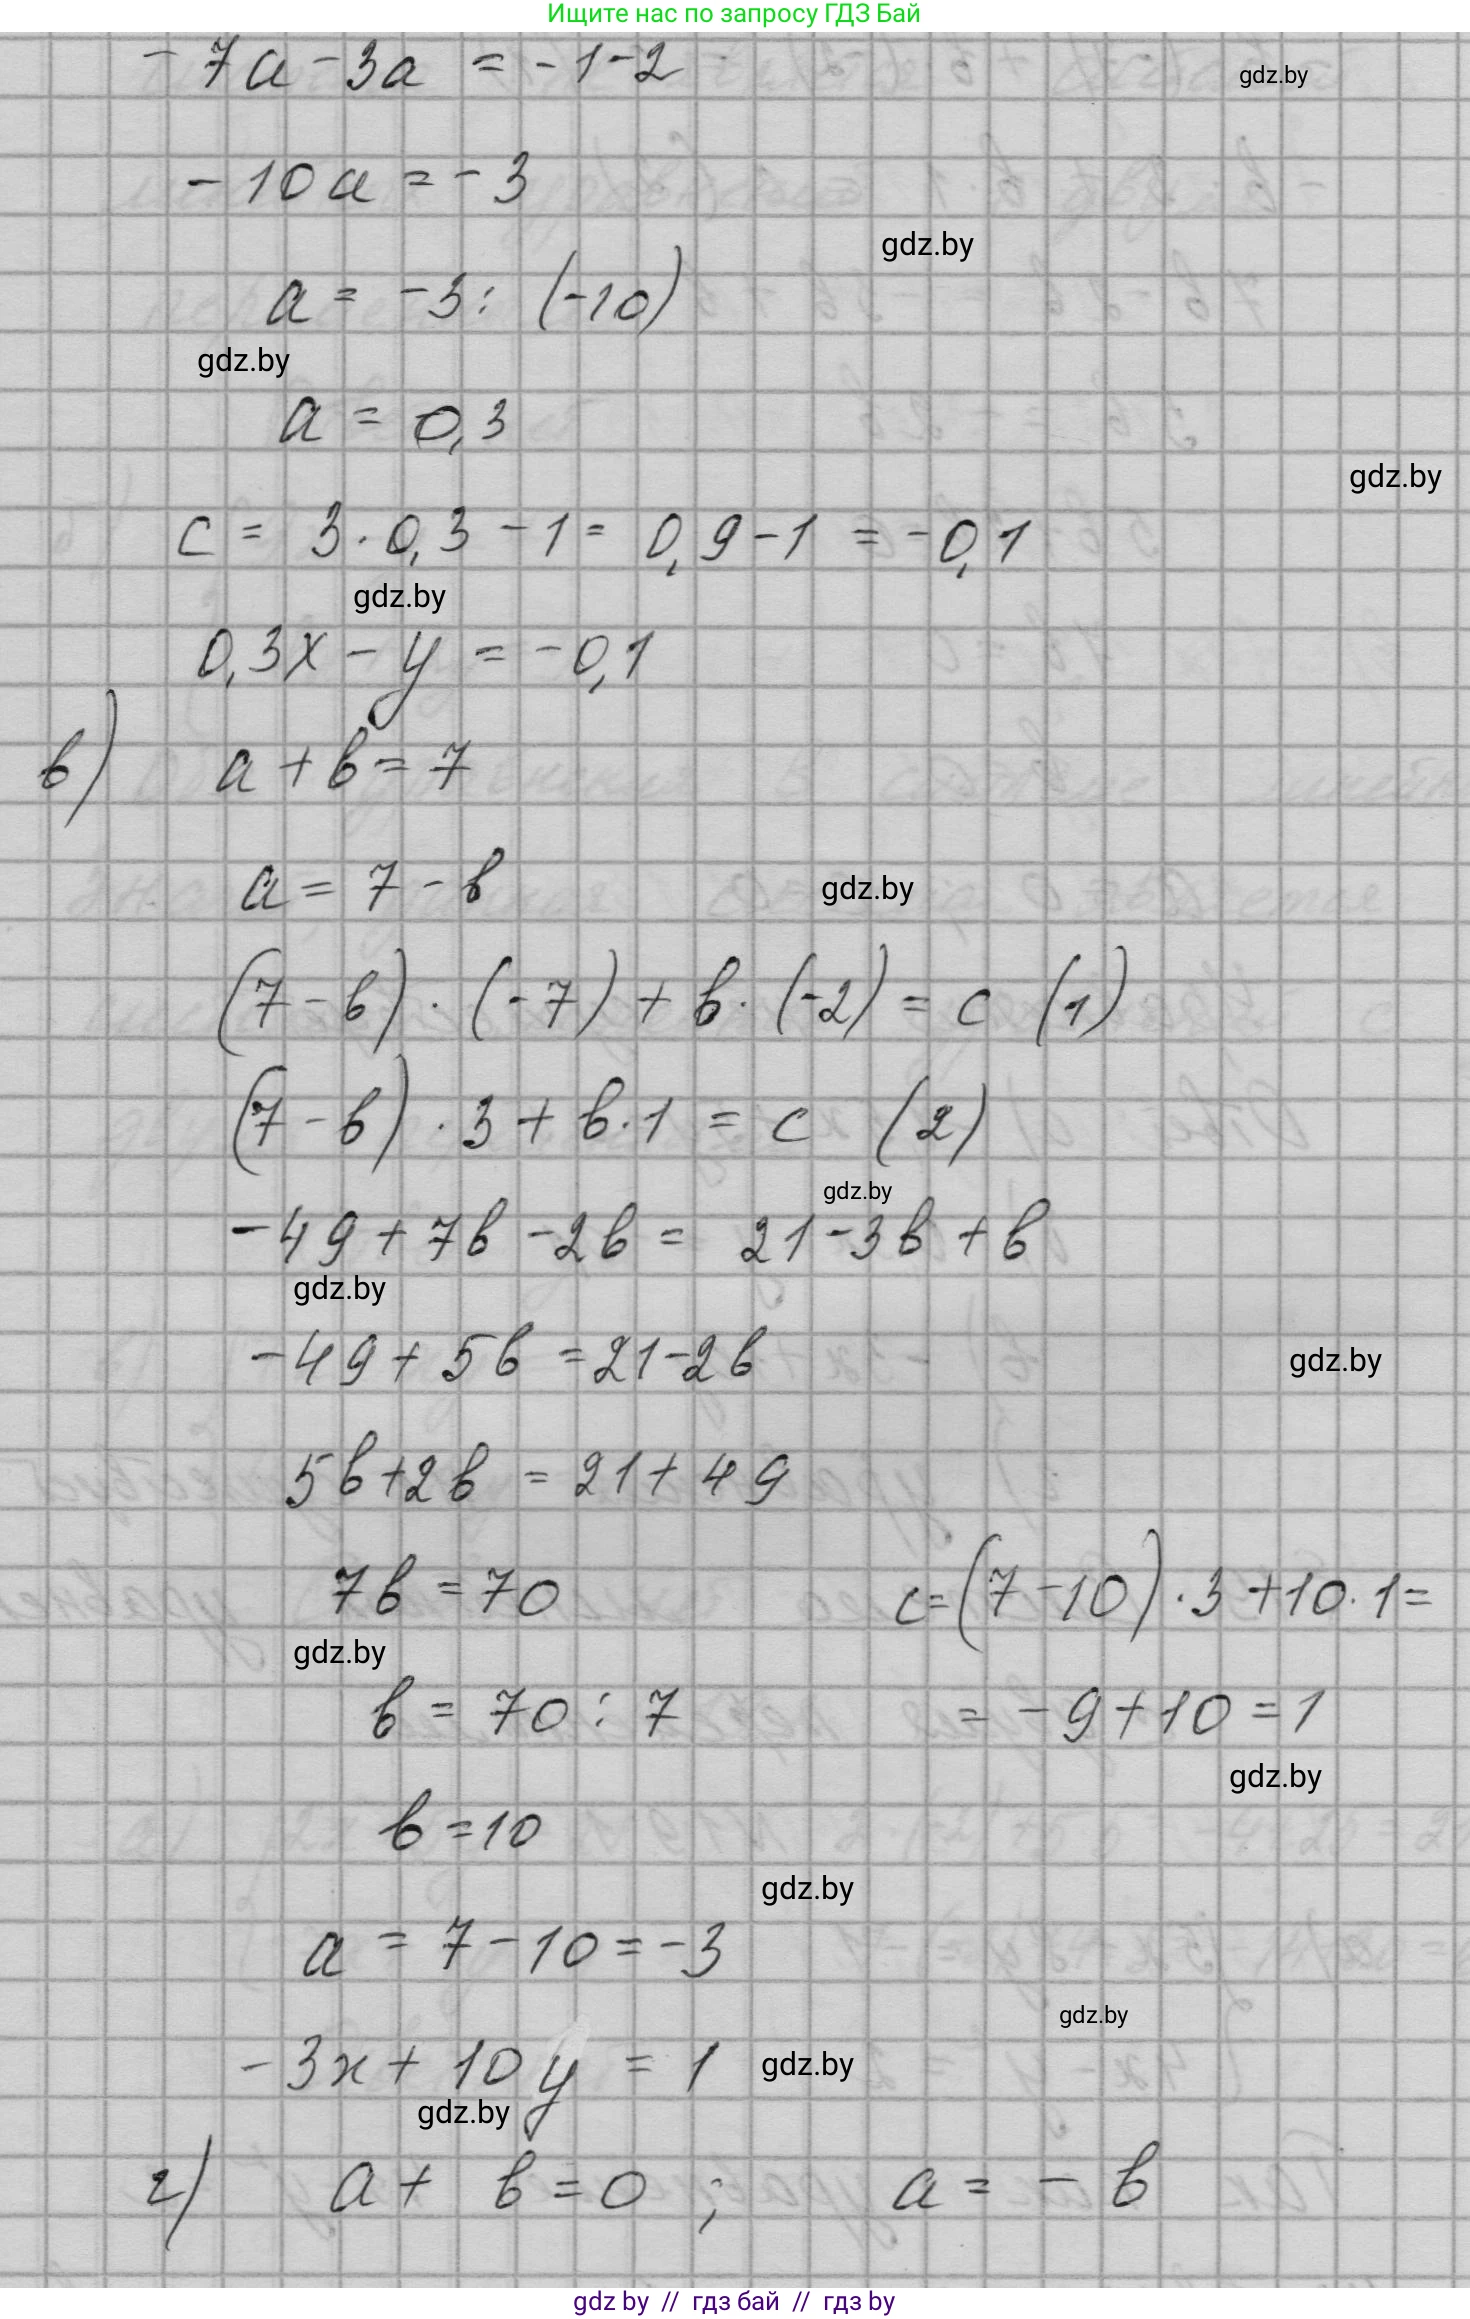 Ищите нас по запросу ГДЗ Бай
-7a-3a = -1-2
gdz.by
-10a = -3
gdz.by
a = -3 : (-10)
gdz.by
a = 0,3
gdz.by
c = 3·0,3 - 1 = 0,9-1 = -0,1
gdz.by
0,3x - y = -0,1
в) a+b=7
a = 7-b
gdz.by
(7-b)·(-7)+b·(-2)=c (1)
(7-b)·3+b·1 = c (2)
gdz.by
-49+7b-2b = 21-3b+b
gdz.by
-49+5b=21-2b
gdz.by
5b+2b = 21+49
7b=70 c=(7-10)·3+10·1=
gdz.by
b = 70 : 7 = -9+10=1
gdz.by
b=10
gdz.by
a = 7-10=-3
gdz.by
-3x+10y = 1
gdz.by
gdz.by
г) a+ b=0 ; a = -b
gdz by // гдз бай // гдз by